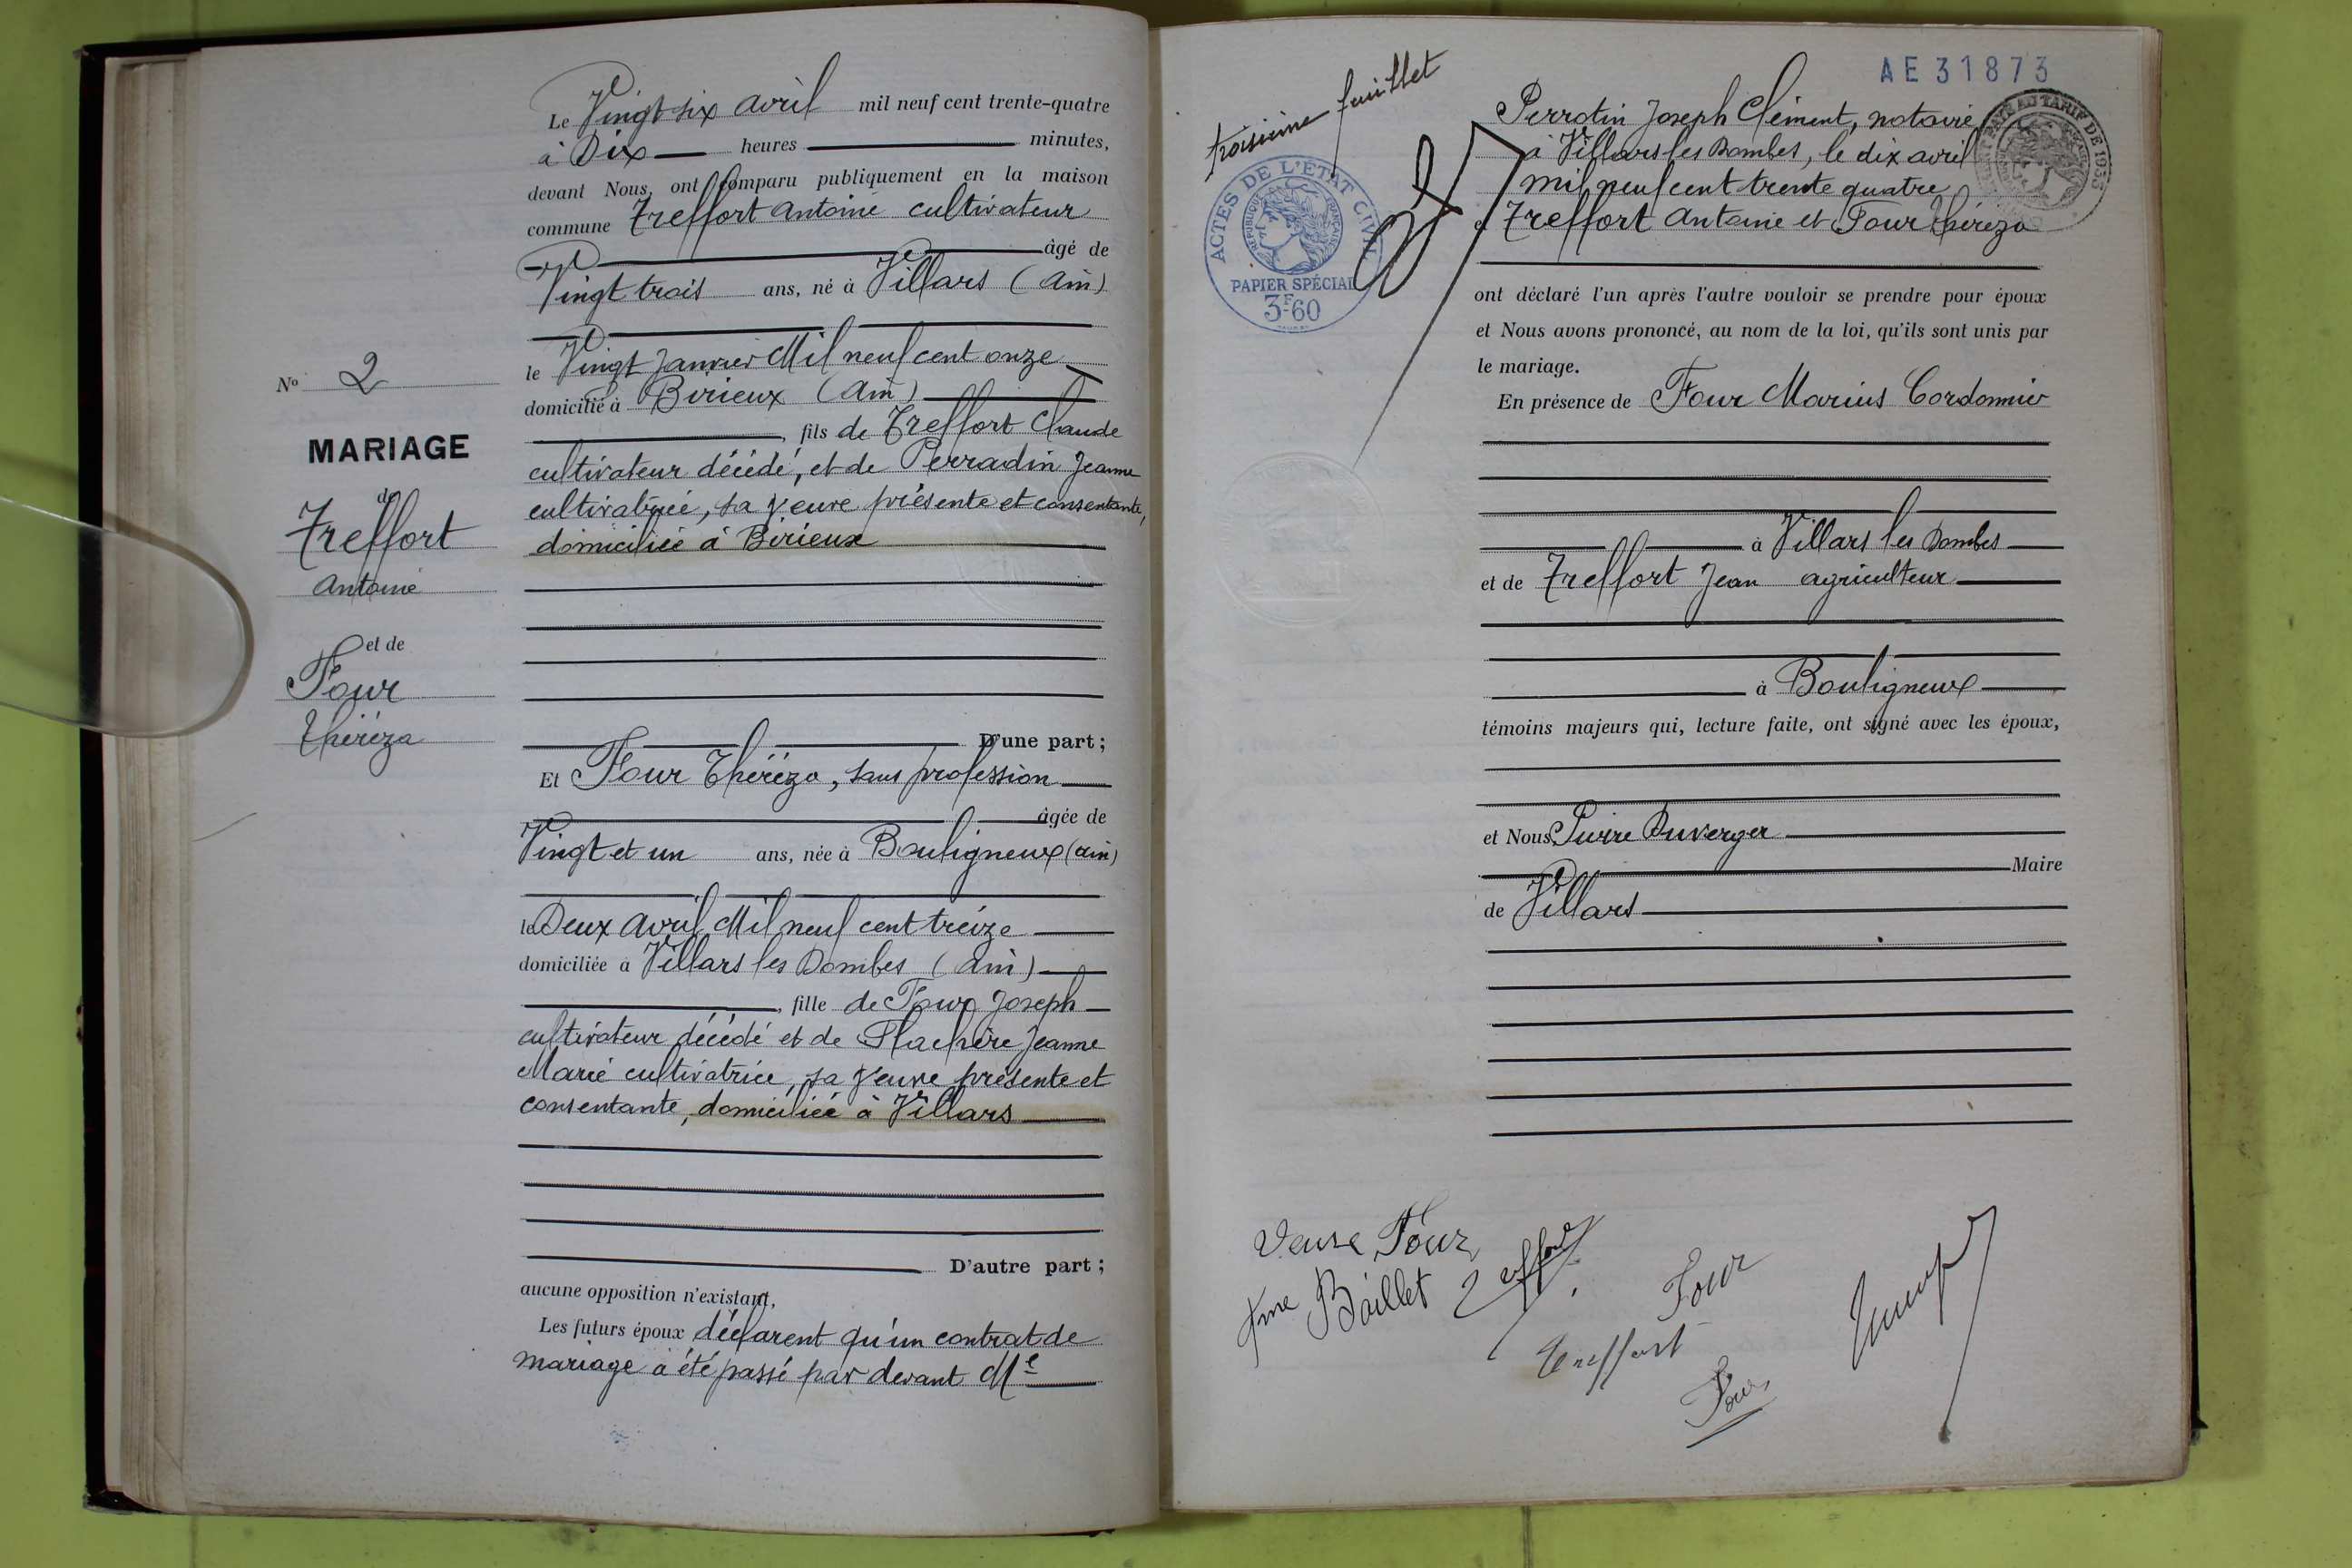 Le Vingt six avril mil neuf cent trente-quatre
à Dix heures minutes,
devant Nous, ont comparu publiquement en la maison
commune Treffort Antoine cultivateur
âgé de
Vingt trois ans, né à Villars (Ain)
le Vingt Janvier Mil neuf cent onze
domicilié à Birieux (Ain)
, fils de Treffort Claude
cultivateur décédé, et de Perradin Jeanne
cultivatrice, sa veuve présente et consentante,
domiciliée à Birieux
D'une part ;
Et Four Théréza, sans profession
âgée de
Vingt et un ans, née à Bouligneux (Ain)
le Deux Avril Mil neuf cent treize
domiciliée à Villars les Dombes (Ain)
, fille de Four Joseph
cultivateur décédé et de Flachère Jeanne
Marie cultivatrice, sa veuve présente et
consentante, domiciliée à Villars
D'autre part ;
aucune opposition n'existant,
Les futurs époux déclarent qu'un contrat de
mariage a été passé par devant Me
No 2
MARIAGE
de
Treffort
Antoine
et de
Four
Théréza
troisième feuillet
AE 31873
ACTES DE L'ÉTAT CIVIL
RÉPUBLIQUE FRANÇAISE
PAPIER SPÉCIAL
3F60
TARIF DE 1933
Perrotin Joseph Clément, notaire
à Villars les Dombes, le dix avril
mil neuf cent trente quatre
Treffort Antoine et Four Théréza
ont déclaré l'un après l'autre vouloir se prendre pour époux
et Nous avons prononcé, au nom de la loi, qu'ils sont unis par
le mariage.
En présence de Four Marius Cordonnier
à Villars les Dombes
et de Treffort Jean agriculteur
à Bouligneux
témoins majeurs qui, lecture faite, ont signé avec les époux,
et Nous Pierre Duverger
Maire
de Villars
Veuve Four
Treffort
Four
Baillet
Treffort
Four